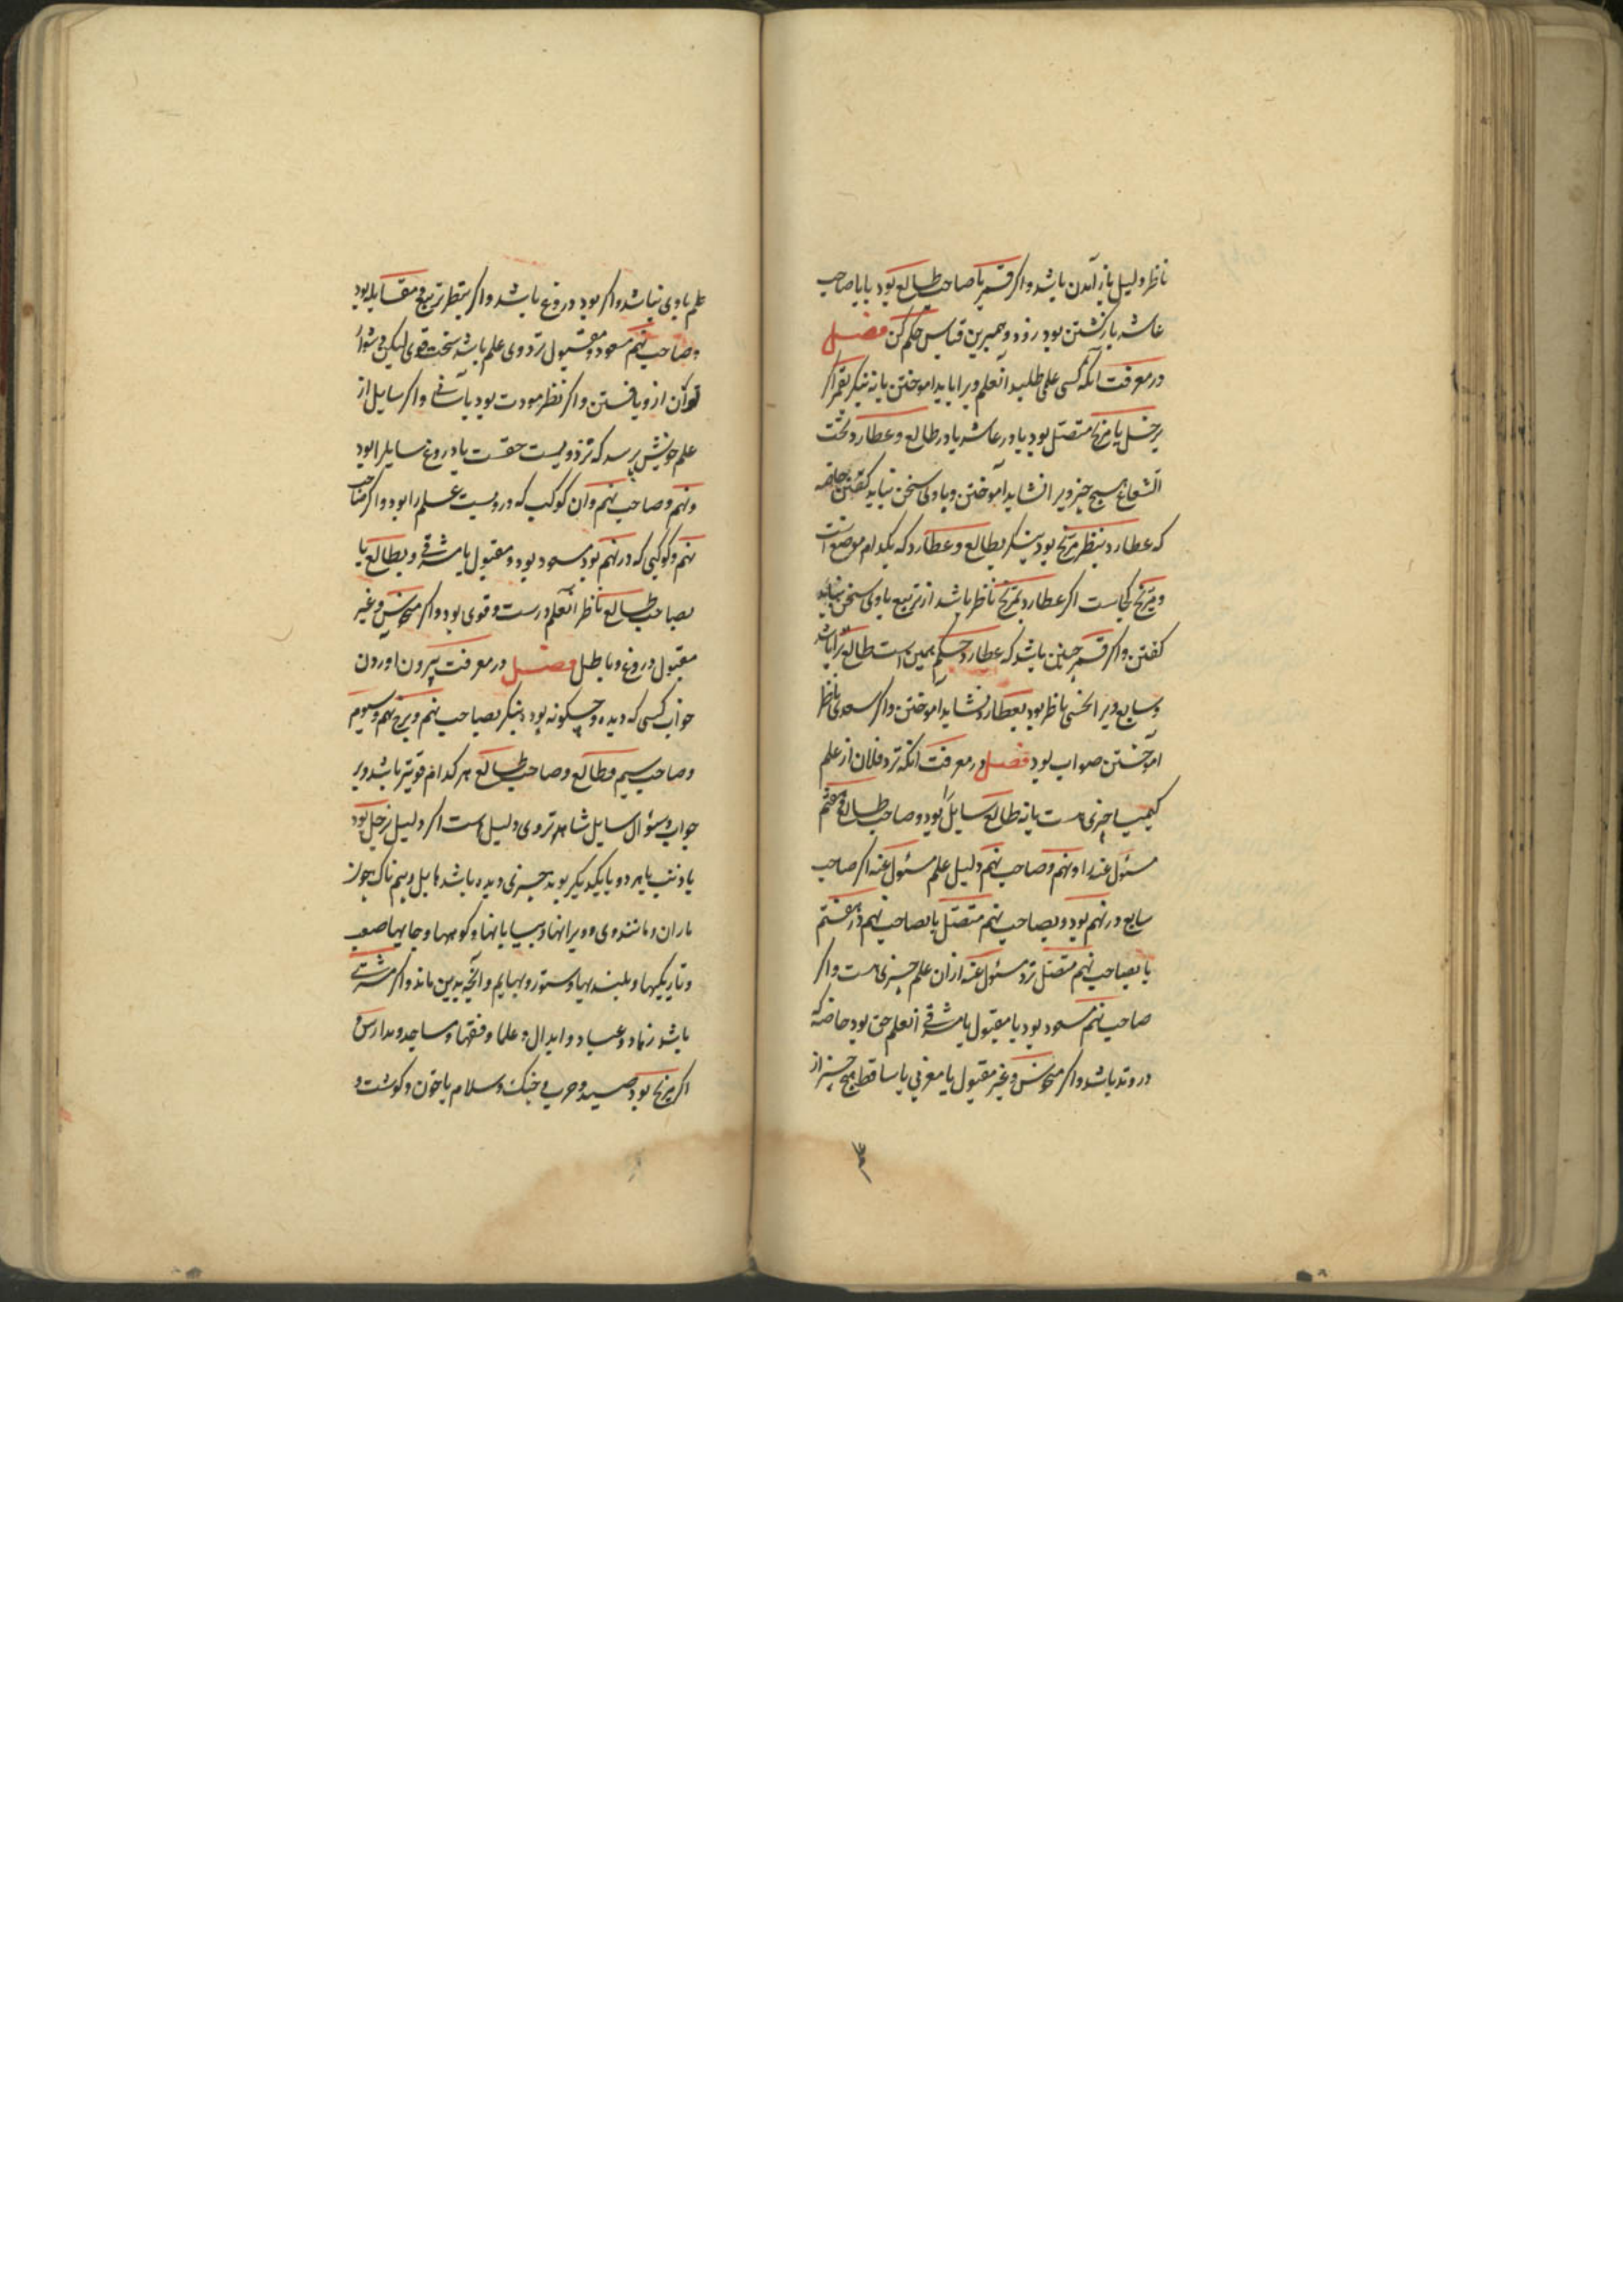 ناظر دلیل باز آمدن باشد و اکر قمر با صاحب طالع بود یا با صاحب
عاشر بازکشتن بود زود و همبرین قیاس حکم کن فصل
در معرفت آنکه کسی علمی طلبد آنعلم ویرا باید اموختن یا نه بنکر بقمر اکر
بزحل یا مریخ متصل بود یا در عاشر یا در طالع و عطارد تحت
الشعاع هیچ چیز ویرا نشاید آموختن و با وی سخن نباید کفتن خاصه
که عطارد بنظر مریخ بود بنکر بطالع و عطارد که بکدام موضع است
و مریخ کجاست اکر عطارد بمریخ ناظر باشد از تربیع با وی سخن نباید
کفتن و اکر قمر چنین باشد که عطارد حکم همین است طالع
و سابع ویرا نحسی ناظر بود بعطارد نشاید آموختن و اکر سعدی ناظر
آموختن صواب بود فصل در معرفت آنکه نزد فلان از علم
کیمیا چیزی هست یا نه طالع سایل را بود و صاحب طالع و هفتم
مسئول عنه را و نهم و صاحب نهم دلیل علم مسئول عنه اکر صاحب
سابع در نهم بود و بصاحب نهم متصل یا صاحب نهم در هفتم
یا بصاحب نهم متصل نزد مسئول عنه از ان علم چیزی هست و اکر
صاحب نهم مسعود بود یا مقبول یا مشرقی آنعلم حق بود خاصه که
در وتد باشد و اکر منحوس و غیر مقبول یا مغربی یا ساقط هیچ چیز از
علم با وی نباشد و اکر بود دروغ باشد و اکر بنظر تربیع و مقابله بود
و صاحب نهم مسعود و مقبول نزد وی علم باشد سخت قوی لیکن دشوار
توان از و یافتن و اکر نظر مودت بود بآسانی و اکر سایل از
علم خویش پرسد که نزد ویست حقست یا دروغ سایل را بود
و نهم و صاحب نهم و ان کوکب که دروست علم را بود و اکر صاحب
نهم و کوکبی که در نهم بود مسعود بود و مقبول یا مشرقی و بطالع یا
بصاحب طالع ناظر آنعلم درست و قوی بود و اکر منحوس و غیر
مقبول دروغ و باطل فصل در معرفت بیرون اوردن
خواب کسی که دیده و چکونه بود بنکر بصاحب نهم و برج نهم و سیوم
و صاحب سیم و طالع و صاحب طالع هر کدام قویتر باشد و بر
جواب و سئوال سایل شاهدتر وی دلیل است اکر دلیل زحل بود
یا ذنب یا هر دو با یکدیکر بودند چیزی دیده باشد هایل و بیم ناک چون
باران و مانند وی و ویرانها و بیابانها و کوهها و جایهاء صعب
و تاریکیها و بلندیها و ستور و بهایم و آنچه بدین ماند و اکر مشتری
باشد زهاد و عباد و ابدال و علما و فقها و مساجد و مدارس و
اکر مریخ بود صید و حرب و جنک و سلاح یا خون و کوشت و